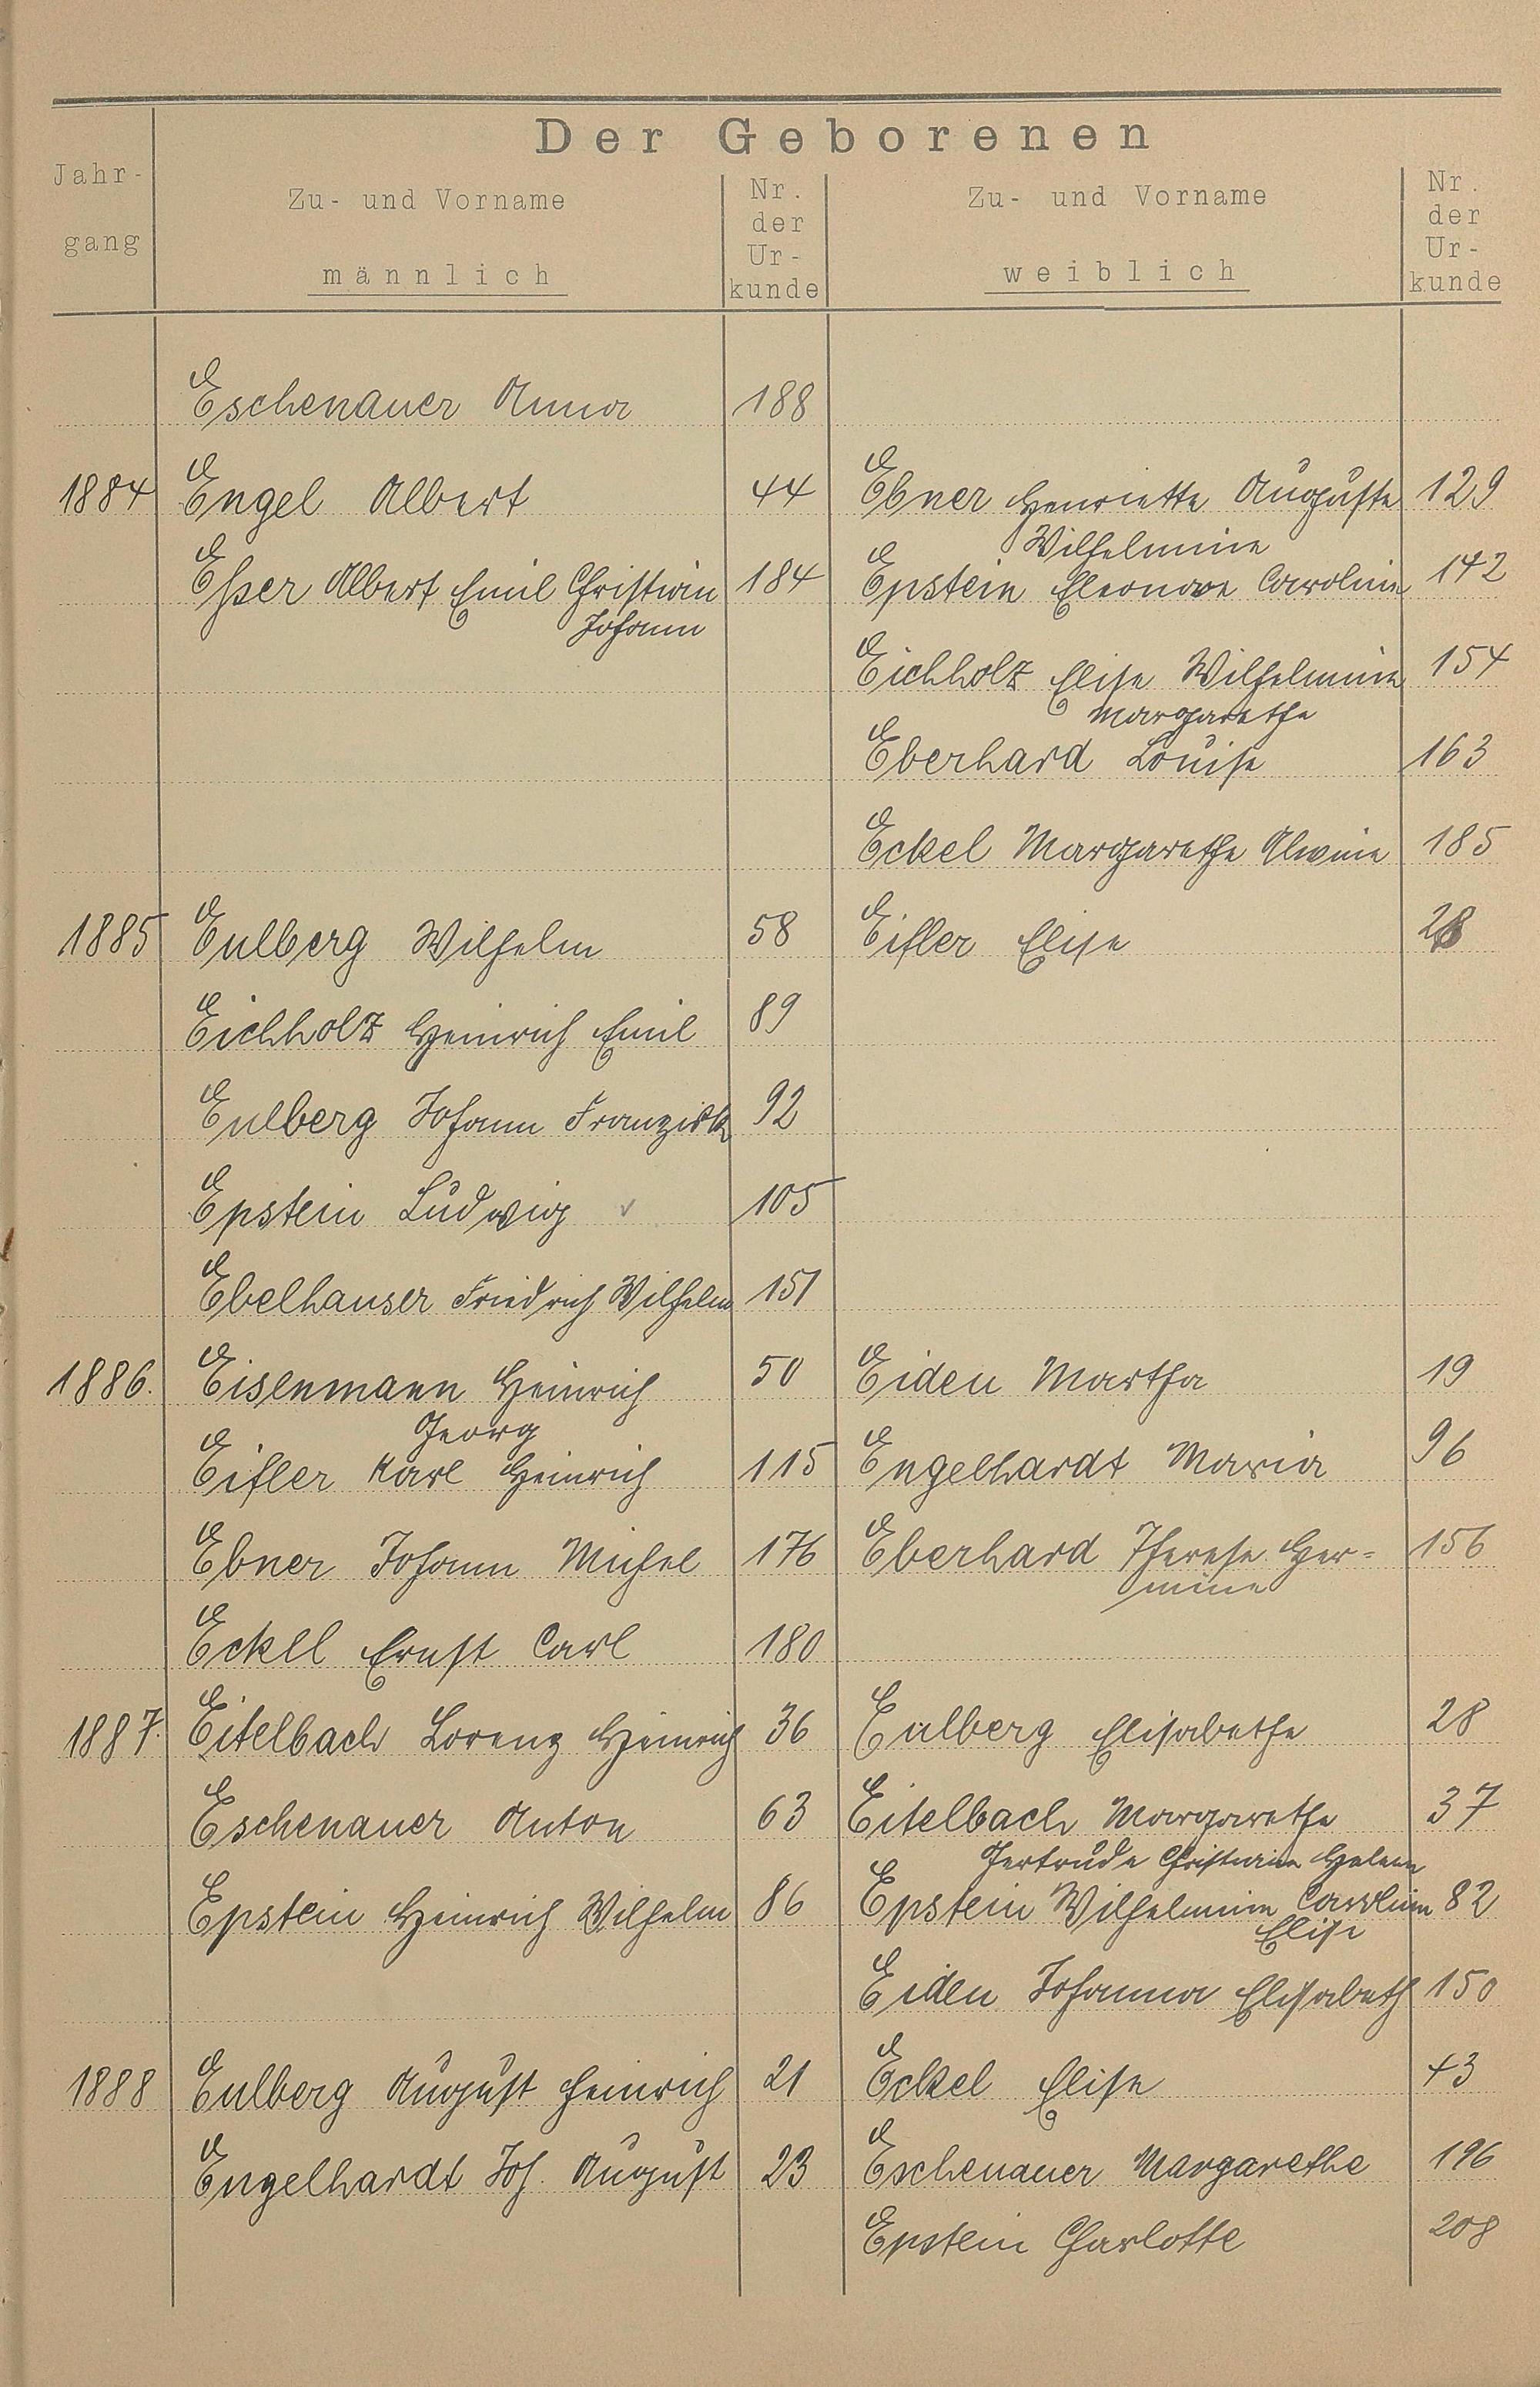 Der Geborenen
Jahr-
gang
Zu- und Vorname
männlich
Nr.
der
Ur-
kunde
Zu- und Vorname
weiblich
Nr.
der
Ur-
kunde
Eschenauer Anna 188
1884 Engel Albert 44 Ebner Henriette Auguste 129
Wilhelmine
Eßer Albert Emil Christian 184 Epstein Eleonore Caroline 142
Johann
Eichholz Elise Wilhelmine 154
Margarethe
Eberhard Louise 163
Eckel Margarethe Alwine 185
1885 Eulberg Wilhelm 58 Eifler Elise 28
Eichholz Heinrich Emil 89
Eulberg Johann Franzisk 92
Epstein Ludwig ✓ 105
Ebelhauser Friedrich Wilhelm 151
1886. Eisenmann Heinrich 50 Eiden Martha 19
Georg
Eifler Karl Heinrich 115 Engelhardt Maria 96
Ebner Johann Michel 176 Eberhard Therese Her= 156
mine
Eckel Ernst Carl 180
1887. Eitelbach Lorenz Heinrich 36 Eulberg Elisabethe 28
Eschenauer Anton 63 Eitelbach Margarethe 37
Gertrude Christiane Helene
Epstein Heinrich Wilhelm 86 Epstein Wilhelmine Caroline 82
Elise
Eiden Johanna Elisabeth 150
1888 Eulberg August Heinrich 21 Eckel Elise 43
Engelhardt Joh. August 23 Eschenauer Margarethe 196
Epstein Charlotte 208